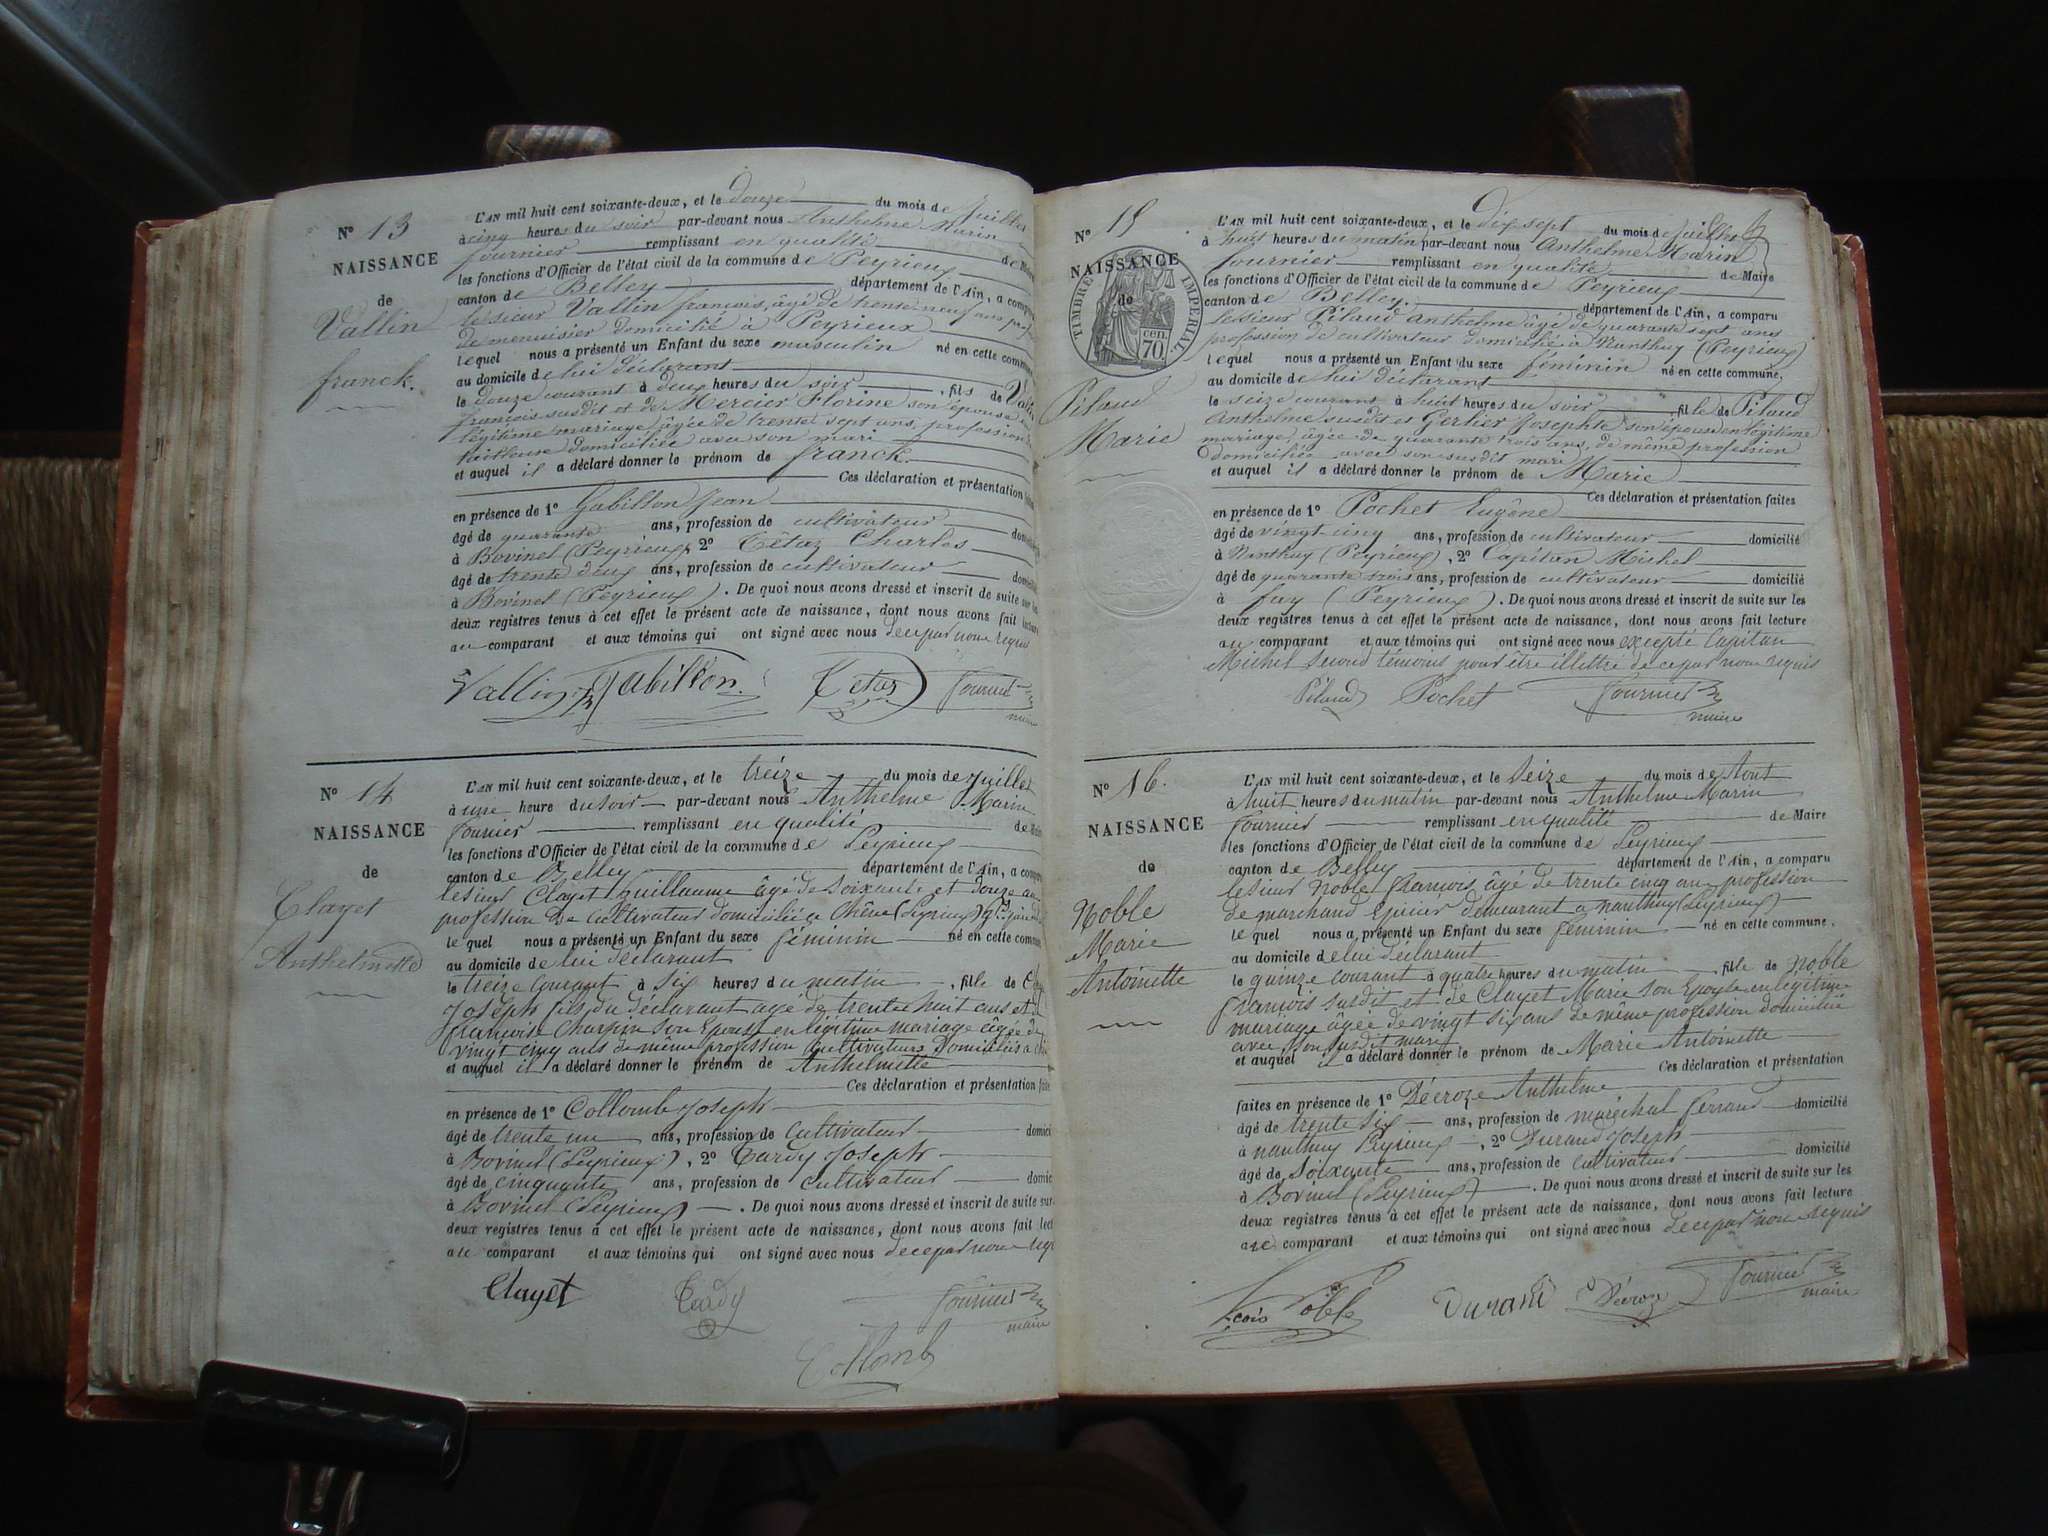 N° 13
NAISSANCE
de
Vallin
franck.
L'AN mil huit cent soixante-deux, et le douze du mois de Juillet
à cinq heures du soir par-devant nous Anthelme Marin
fournier remplissant en qualité de Maire
les fonctions d'Officier de l'état civil de la commune de Peyrieux
canton de Belley département de l'Ain, a comparu
le sieur Vallin françois, âgé de trente neuf ans
de menuisier domicilié à Peyrieux
lequel nous a présenté un Enfant du sexe masculin né en cette
au domicile de lui déclarant
le douze courant à deux heures du soir, fils de
françois susdit et de Mercier Florine son épouse
légitime mariage, âgée de trente sept ans, profession
tailleuse domiciliée avec son mari
et auquel il a déclaré donner le prénom de franck.
Ces déclaration et présentation
en présence de 1° Gabillon Jean
âgé de quarante ans, profession de cultivateur
à Bovinel (Peyrieux), 2° Tétaz Charles
âgé de trente deux ans, profession de cultivateur
à Bovinel (Peyrieux). De quoi nous avons dressé et inscrit de suite sur
deux registres tenus à cet effet le présent acte de naissance, dont nous avons fait lecture
au comparant et aux témoins qui ont signé avec nous de ce par nous requis
Vallin Gabillon Tetaz Fournier
maire
N° 14
NAISSANCE
de
Clayet
Anthelmette
L'AN mil huit cent soixante-deux, et le treize du mois de Juillet
à une heure du soir par-devant nous Anthelme Marin
fournier remplissant en qualité de
les fonctions d'Officier de l'état civil de la commune de Peyrieux
canton de Belley département de l'Ain, a
le sieur Clayet Guillaume âgé de soixante et douze ans
profession de cultivateur domicilié a Chêne (Peyrieux)
le quel nous a présenté un Enfant du sexe féminin né en cette
au domicile de lui déclarant
le treize courant à six heures du matin, fille de
Joseph fils du déclarant agé de trente huit ans et
françoise Charpin son Epouse en légitime mariage âgée de
vingt cinq ans de même profession cultivateurs domiciliés a
et auquel il a déclaré donner le prénom de Anthelmette
Ces déclaration et présentation
en présence de 1° Collomb Joseph
âgé de trente un ans, profession de cultivateur
à Bovinel (Peyrieux), 2° Tardy Joseph
âgé de cinquante ans, profession de cultivateur
à Bovinel (Peyrieux). De quoi nous avons dressé et inscrit de suite sur
deux registres tenus à cet effet le présent acte de naissance, dont nous avons fait
au comparant et aux témoins qui ont signé avec nous de ce par nous
Clayet Tardy Fournier
maire
Collomb
N° 15
NAISSANCE
de
TIMBRE IMPERIAL
70 cen.
Pilaud
Marie
L'AN mil huit cent soixante-deux, et le dix sept du mois de Juillet
à huit heures du matin par-devant nous Anthelme Marin
fournier remplissant en qualité de Maire
les fonctions d'Officier de l'état civil de la commune de Peyrieux
canton de Belley. département de l'Ain, a comparu
le sieur Pilaud Anthelme âgé de quarante sept ans
profession de cultivateur domicilié à Nanthuy (Peyrieux)
lequel nous a présenté un Enfant du sexe féminin né en cette commune,
au domicile de lui déclarant
le seize courant à huit heures du soir, fille de Pilaud
Anthelme susdit et Gerlier Josephte son épouse en légitime
mariage, âgée de quarante trois ans, de même profession
domiciliée avec son susdit mari
et auquel il a déclaré donner le prénom de Marie
Ces déclaration et présentation faites
en présence de 1° Pochet Eugène
âgé de vingt-cinq ans, profession de cultivateur domicilié
à Nanthuy (Peyrieux), 2° Capitan Michel
âgé de quarante trois ans, profession de cultivateur domicilié
à fay (Peyrieux). De quoi nous avons dressé et inscrit de suite sur les
deux registres tenus à cet effet le présent acte de naissance, dont nous avons fait lecture
au comparant et aux témoins qui ont signé avec nous excepté Capitan
Michel second témoins pour être illettré de ce par nous requis
Pilaud Pochet Fournier
maire
N° 16.
NAISSANCE
de
Noble
Marie
Antoinette
L'AN mil huit cent soixante-deux, et le Seize du mois de Aout
à huit heures du matin par-devant nous Anthelme Marin
fournier remplissant en qualité de Maire
les fonctions d'Officier de l'état civil de la commune de Peyrieux
canton de Belley département de l'Ain, a comparu
le sieur Noble François âgé de trente cinq ans profession
de marchand Epicier demeurant a nanthuy (Peyrieux)
le quel nous a présenté un Enfant du sexe féminin né en cette commune,
au domicile de lui déclarant
le quinze courant à quatre heures du matin, fille de Noble
françois susdit et de Clayet Marie son Epouse en légitime
mariage âgée de vingt six ans de même profession domiciliée
avec son susdit mari
et auquel il a déclaré donner le prénom de Marie Antoinette
Ces déclaration et présentation
faites en présence de 1° Décroze Anthelme
âgé de trente six ans, profession de maréchal ferrand domicilié
à nanthuy Peyrieux, 2° Durand Joseph
âgé de soixante ans, profession de cultivateur domicilié
à Bovinel (Peyrieux). De quoi nous avons dressé et inscrit de suite sur les
deux registres tenus à cet effet le présent acte de naissance, dont nous avons fait lecture
au comparant et aux témoins qui ont signé avec nous de ce par nous requis
fçois Noble Durand Décroze Fournier
maire